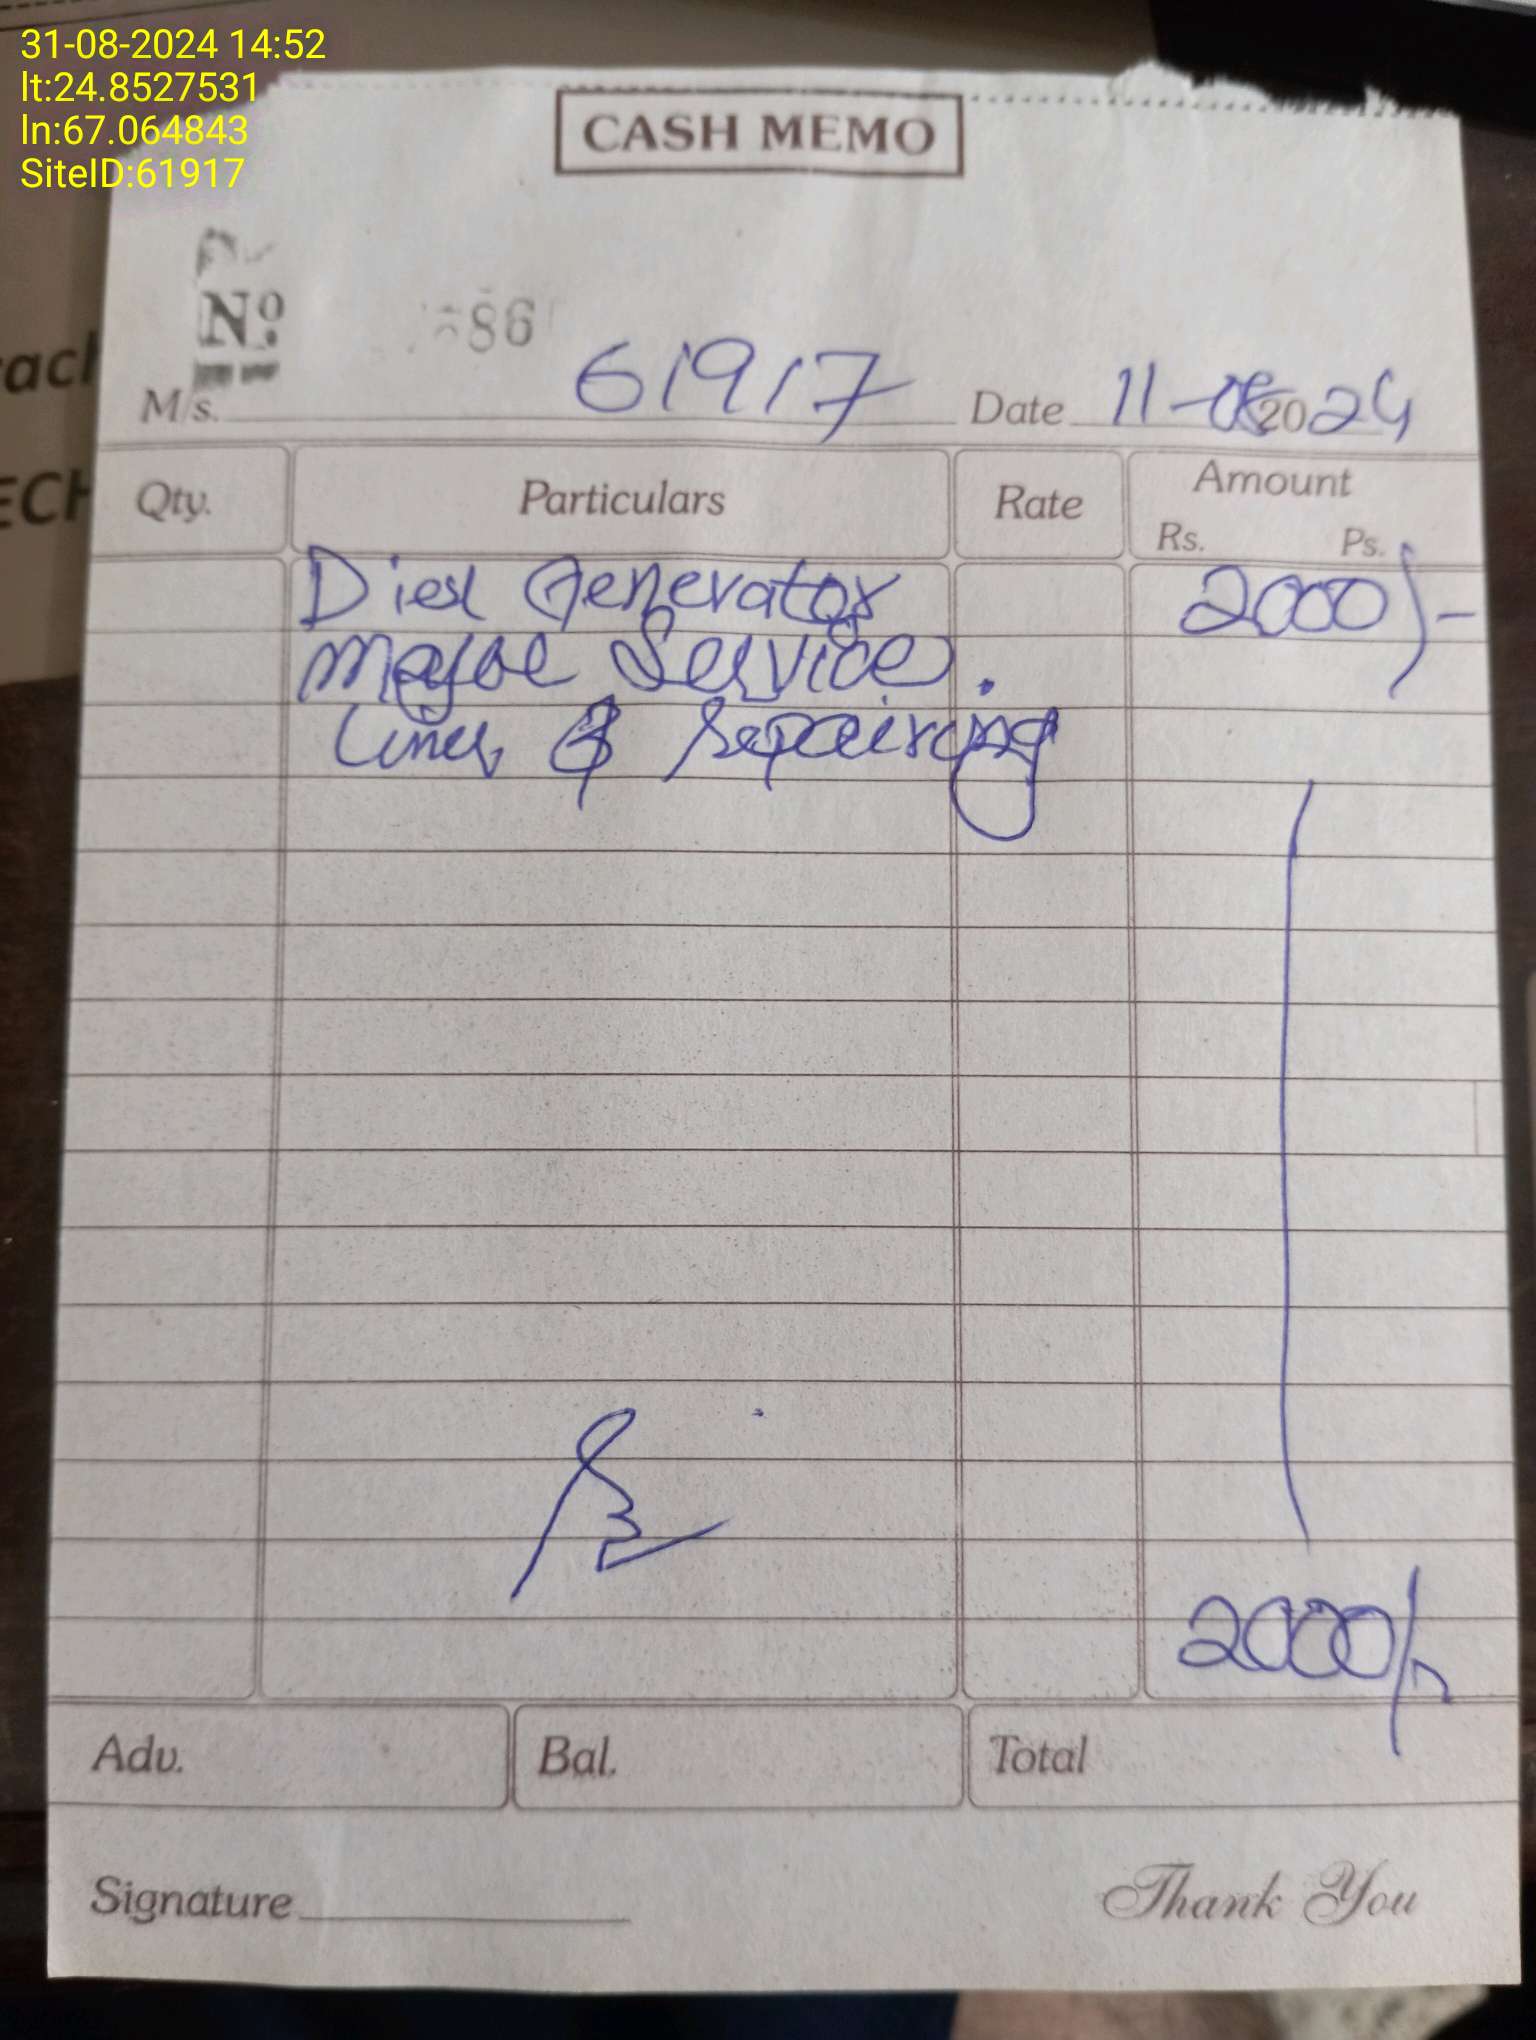 31-08-2024 14:52
lt:24.8527531
ln:67.064843
SiteID:61917
CASH MEMO
No. 86
M/s. 61917 Date 11-08-2024
Qty. Particulars Rate Amount
Rs. Ps.
Diesl Generator 2000/-
Major Service.
& Repairing
2000/-
Adv. Bal. Total
Signature Thank You
ach
ECH